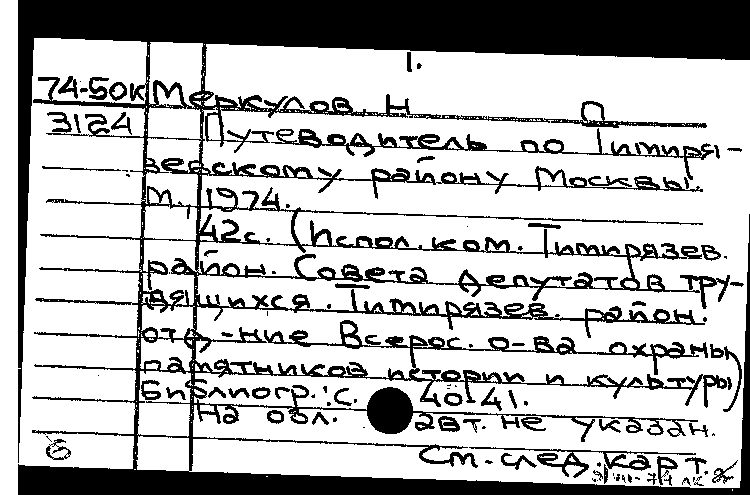 1.
74-50к Меркулов, Н П
3124 Путеводитель по Тимиря-
зевскому району Москвы.
М., 1974.
42с. (Испол. ком. Тимирязев.
район. Совета депутатов тру-
дящихся. Тимирязев. район.
отд-ние Всерос. о-ва охраны
памятников истории и культуры)
Библиогр.: с. 40-41.
На обл. авт. не указан.
См. след. карт.
6